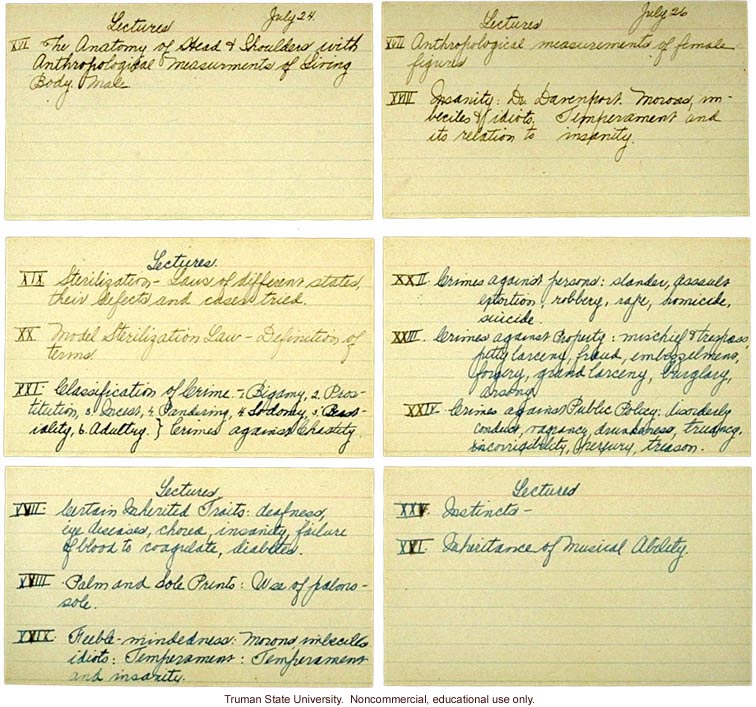 Lectures July 24.
XVI The Anatomy of Head & Shoulders with
Anthropological Measurments of Living
Body. Male
Lectures July 26
XVII Anthropological measurements of female
figures
XVIII Insanity: Dr. Davenport. Morons, im-
beciles & idiots. Temperament and
its relation to insanity.
Lectures
XIX Sterilization - Laws of different states,
their defects and cases tried.
XX Model Sterilization Law - Definition of
terms.
XXI Classification of Crime. - 1. Bigamy, 2. Pros-
titution, 3. Incest, 4. Pandering, 4. Sodomy, 5. Beast-
iality, 6. Adultry. } Crimes against Chastity.
XXII Crimes against persons: slander, assault
extortion, robbery, rape, homicide,
suicide.
XXIII. Crimes against Property: mischief & trespass,
petty larceny, fraud, embezzelment,
forgery, grand larceny, burglary,
arson.
XXIV. Crimes against Public Policy: disorderly
conduct, vagrancy, drunkeness, truancy,
incorrigibility, perjury, treason.
Lectures
Certain Inherited Traits: deafness,
eye diseases, chorea, insanity, failure
of blood to coagulate, diabetes.
Palm and sole Prints: Use of palms-
sole.
Feeble-mindedness: Morons imbeciles
idiots: Temperament: Temperament
and insanity.
Lectures
XXV. Instincts -
Inheritance of Musical Ability.
Truman State University. Noncommercial, educational use only.